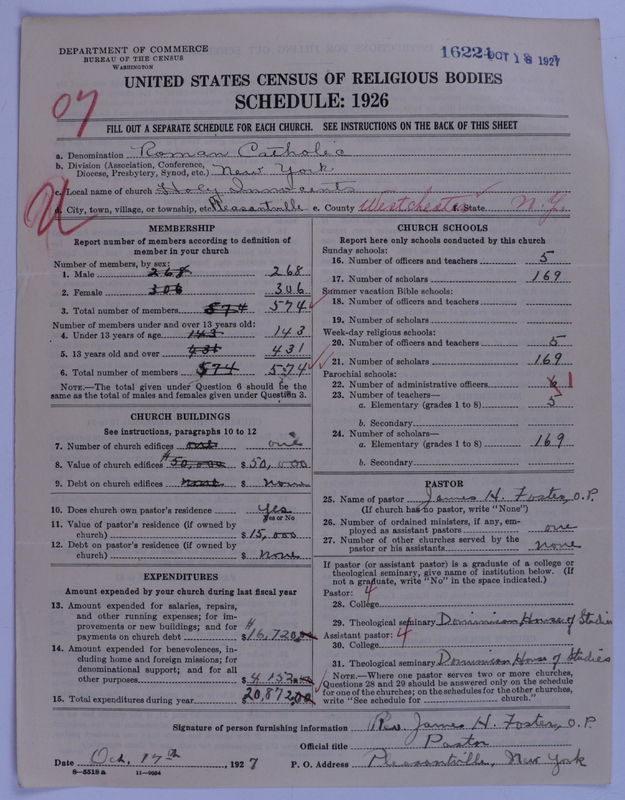 DEPARTMENT OF COMMERCE
BUREAU OF THE CENSUS
WASHINGTON
16221 OCT 18 1927
UNITED STATES CENSUS OF RELIGIOUS BODIES
SCHEDULE: 1926
FILL OUT A SEPARATE SCHEDULE FOR EACH CHURCH. SEE INSTRUCTIONS ON THE BACK OF THIS SHEET
a. Denomination Roman Catholic
b. Division (Association, Conference,
Diocese, Presbytery, Synod, etc.) New York.
c. Local name of church Holy Innocents
d. City, town, village, or township, etc. Pleasantville e. County Westchester f. State N.Y.
MEMBERSHIP
Report number of members according to definition of
member in your church
Number of members, by sex:
1. Male 268 268
2. Female 306 306
3. Total number of members 574 574
Number of members under and over 13 years old:
4. Under 13 years of age 143 143
5. 13 years old and over 431 431
6. Total number of members 574 574
NOTE.—The total given under Question 6 should be the
same as the total of males and females given under Question 3.
CHURCH BUILDINGS
See instructions, paragraphs 10 to 12
7. Number of church edifices one one
8. Value of church edifices 50,000 $ 50,000
9. Debt on church edifices none $ none
10. Does church own pastor's residence yes
Yes or No
11. Value of pastor's residence (if owned by
church) $ 15,000
12. Debt on pastor's residence (if owned by
church) $ none
EXPENDITURES
Amount expended by your church during last fiscal year
13. Amount expended for salaries, repairs,
and other running expenses; for im-
provements or new building; and for
payments on church debt $ 16,720.00
14. Amount expended for benevolences, in-
cluding home and foreign missions; for
denominational support; and for all
other purposes $ 4152.00
15. Total expenditures during year 20,872.00
CHURCH SCHOOLS
Report here only schools conducted by this church
Sunday schools:
16. Number of officers and teachers 5
17. Number of scholars 169
Summer vacation Bible schools:
18. Number of officers and teachers
19. Number of scholars
Week-day religious schools:
20. Number of officers and teachers 5
21. Number of scholars 169
Parochial schools:
22. Number of administrative officers 1
23. Number of teachers—
a. Elementary (grades 1 to 8) 5
b. Secondary
24. Number of scholars—
a. Elementary (grades 1 to 8) 169
b. Secondary
PASTOR
25. Name of pastor James H. Foster, O.P.
(If church has no pastor, write "None")
26. Number of ordained ministers, if any, em-
ployed as assistant pastors one
27. Number of other churches served by the
pastor or his assistants none
If pastor (or assistant pastor) is a graduate of a college or
theological seminary, give name of institution below. (If
not a graduate, write "No" in the space indicated.)
Pastor: 4
28. College
29. Theological seminary Dominican House of Studies
Assistant pastor: 4
30. College
31. Theological seminary Dominican House of Studies
NOTE.—Where one pastor serves two or more churches,
Questions 28 and 29 should be answered only on the schedule
for one of the churches; on the schedules for the other churches,
write "See schedule for church."
Signature of person furnishing information Rev. James H. Foster, O.P.
Official title Pastor
Date Oct. 17th, 1927 P. O. Address Pleasantville, New York
8—5518a 11—9064